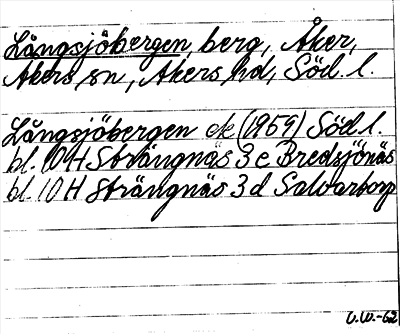 Långsjöbergen, berg, Åker,
Åkers sn, Åkers hd, Söd. l.
Långsjöbergen ek (1959) Söd. l.
bl. 10 H Strängnäs 3 c Bredsjönäs
bl. 10 H Strängnäs 3 d Salvartorp
U.W.-62